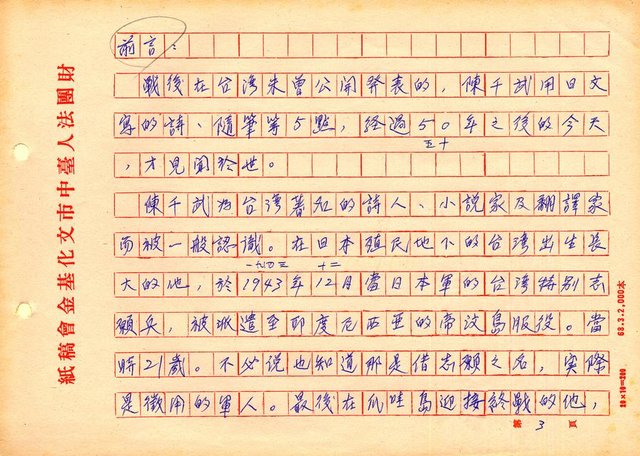 前言：
戰後在台湾未曾公開発表的，陳千武用日文
寫的詩、隨筆等5點，経過50年之後的今天
五十
，才見聞於世。
陳千武為台湾著知的詩人、小說家及翻譯家
而被一般認識。在日本殖民地下的台湾出生長
一九四三 十二
大的他，於1943年12月當日本軍的台湾特別志
願兵，被派遣至印度尼西亜的帝汶島服役。當
時21歲。不必說也知道那是借志願之名，実際
是徵用的軍人。最後在爪哇島迎接終戰的他，
第3頁
財團法人臺中市文化基金會稿紙
68.3.2,000本
20×10=200